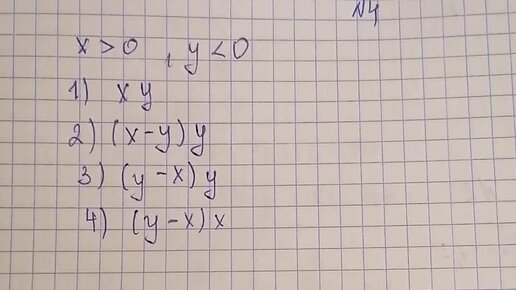 N4
x > 0 , y < 0
1) xy
2) (x-y)y
3) (y-x)y
4) (y-x)x